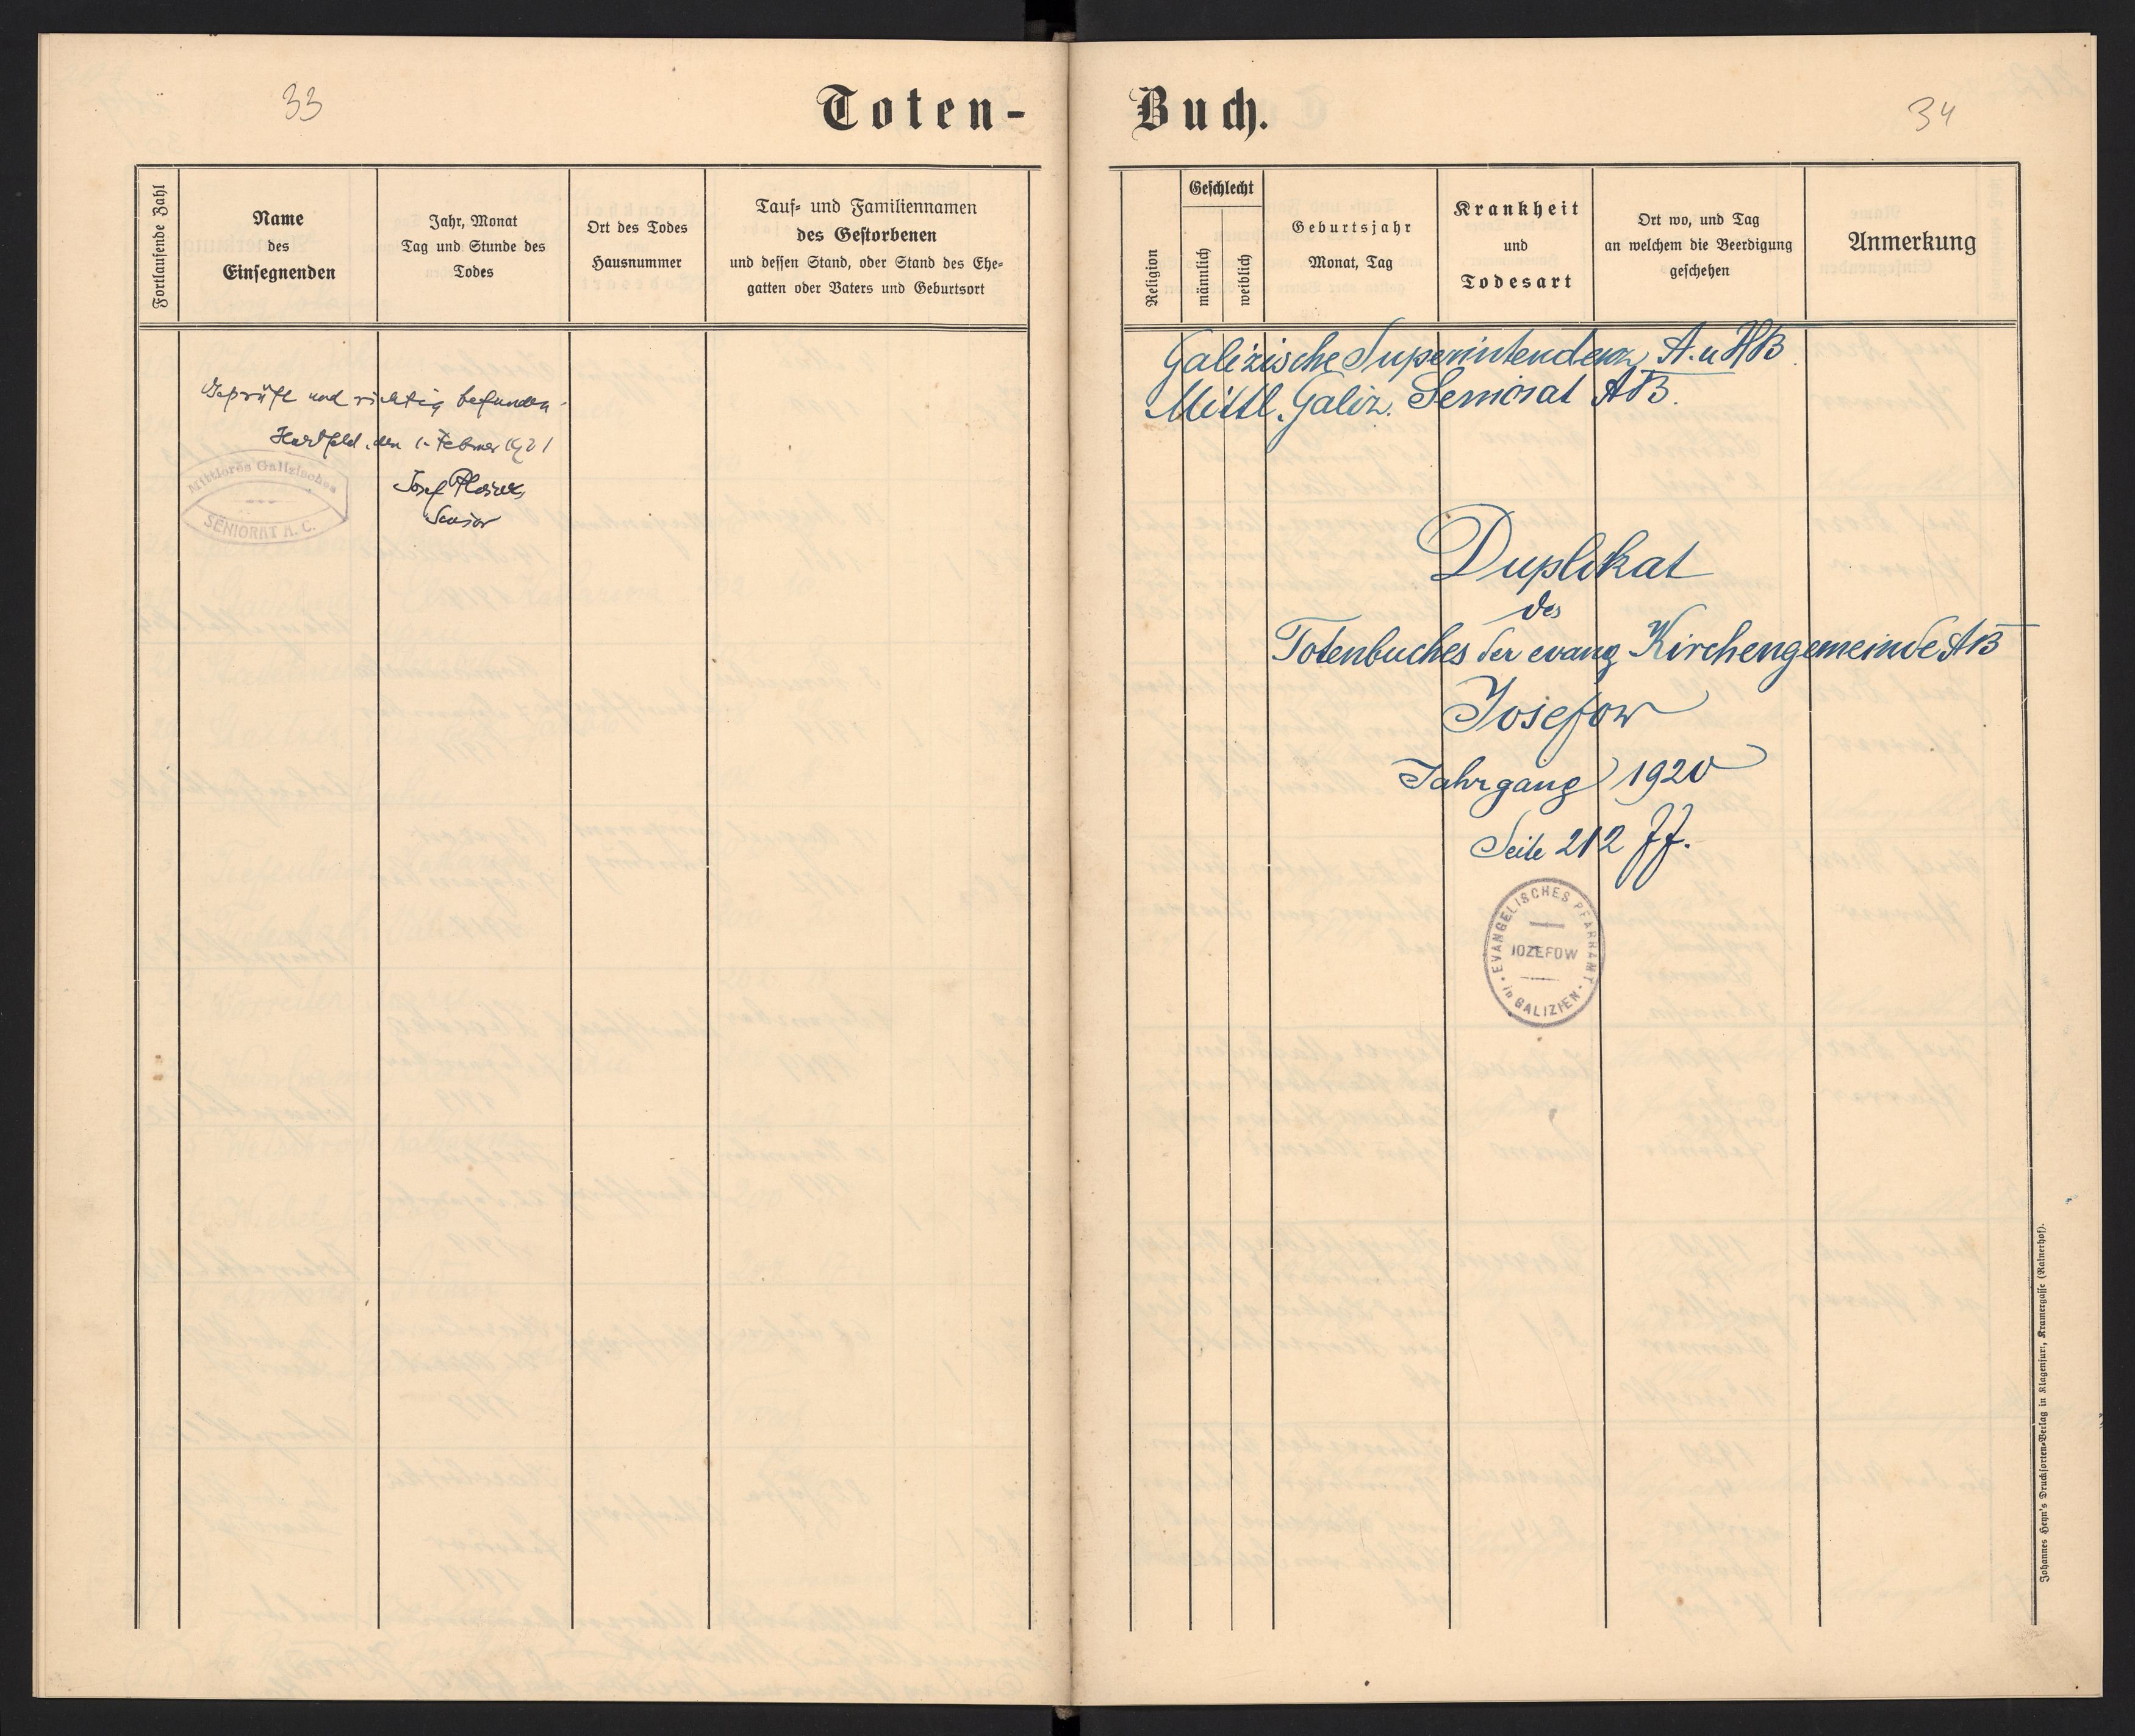 33
Toten-
Fortlaufende Zahl
Name
des
Einsegnenden
Jahr, Monat
Tag und Stunde des
Todes
Ort des Todes
Hausnummer
Tauf- und Familiennamen
des Gestorbenen
und dessen Stand, oder Stand des Ehe-
gatten oder Vaters und Geburtsort
Geprüft und richtig befunden.
Hartfeld, den 1. Feber 1921
Josef
Senior
Mittleres Galizisches
SENIORAT A. C.
Buch.
34
Religion
Geschlecht
männlich
weiblich
Geburtsjahr
Monat, Tag
Krankheit
und
Todesart
Ort wo, und Tag
an welchem die Beerdigung
geschehen
Anmerkung
Galizische Superintendenz A. u HB.
Mittl. Galiz. Seniorat AB.
Duplikat
des
Totenbuches der evang Kirchengemeinde AB
Josefow
Jahrgang 1920
Seite 212 ff.
EVANGELISCHES PFARRAMT
IOZEFOW
in GALIZIEN
Johannes Heyn's Drucksorten-Verlag in Klagenfurt, Kramergasse (Ratnerhof).